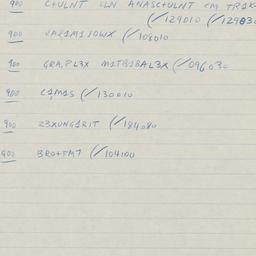 900 C+ULNT CLN ANASC+ULNT CM TRIK
(/129010 (/12903
900 VARIMISOWX (/108010
900 GRA,PL3X MITBIBAL3X (/096030
900 CIMAS (/130010
900 Z3XUNGIRIT (/184080
900 BRO+FM7 (/104100